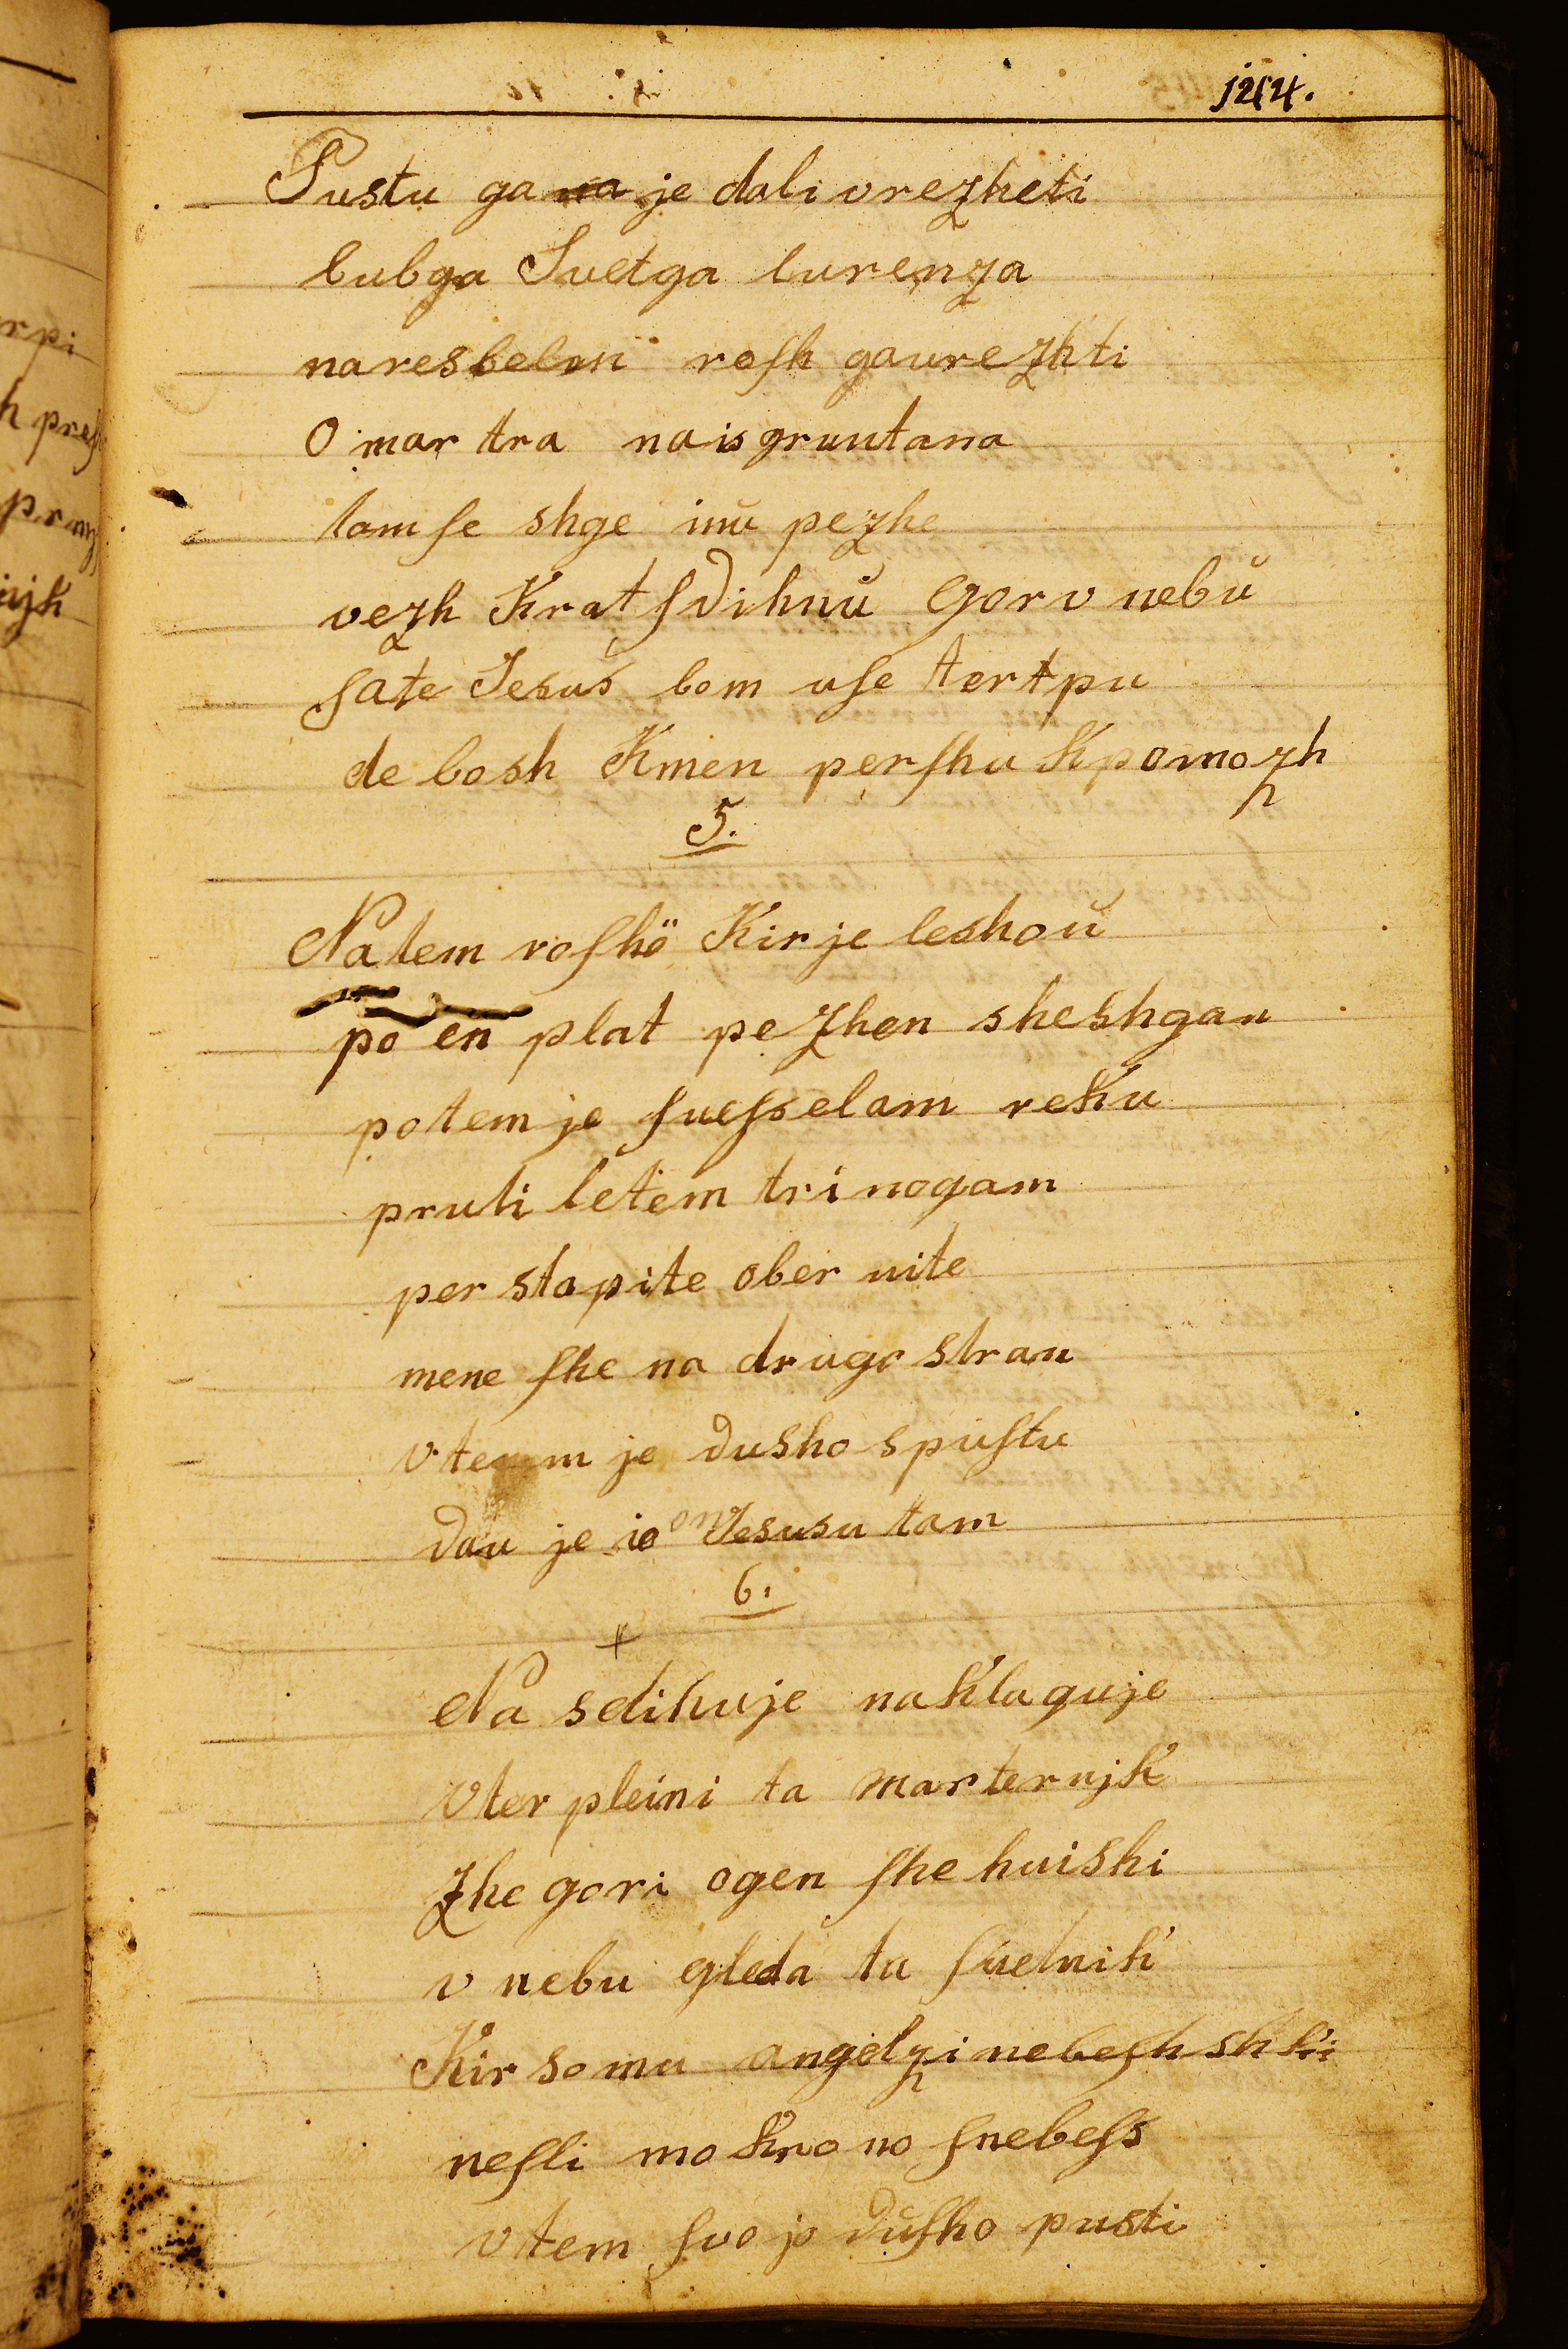 1244.
Pustu ga na je dali vrezheti
lubga Svetga lurenza
naresbelen rosh gaurezhti
O mar tra nais gruntana
tam se shge inu pezhe
vezh Krat sdihnů Gor v nebů
sate Jesus bom use tertpu
de bosh Kmen pershu Kpomozh
5.
Na tem roshö Kir je leshoů
po en plat pezhen sheshgan
potem je suesselam reku
pruti letem trinogam
per stapite ober nite
mene she na drugo stran
vtemm je dusho spustu
dau je io on Jesusu tam
6.
Na sdihuje naklaguje
Vter pleini ta marternjk
Zhe gori ogen she huishi
v nebu gleda ta suetnik
Kir so mu angelzi nebesh shki
nesli mo Krono snebess
vtem svojo dusho pusti